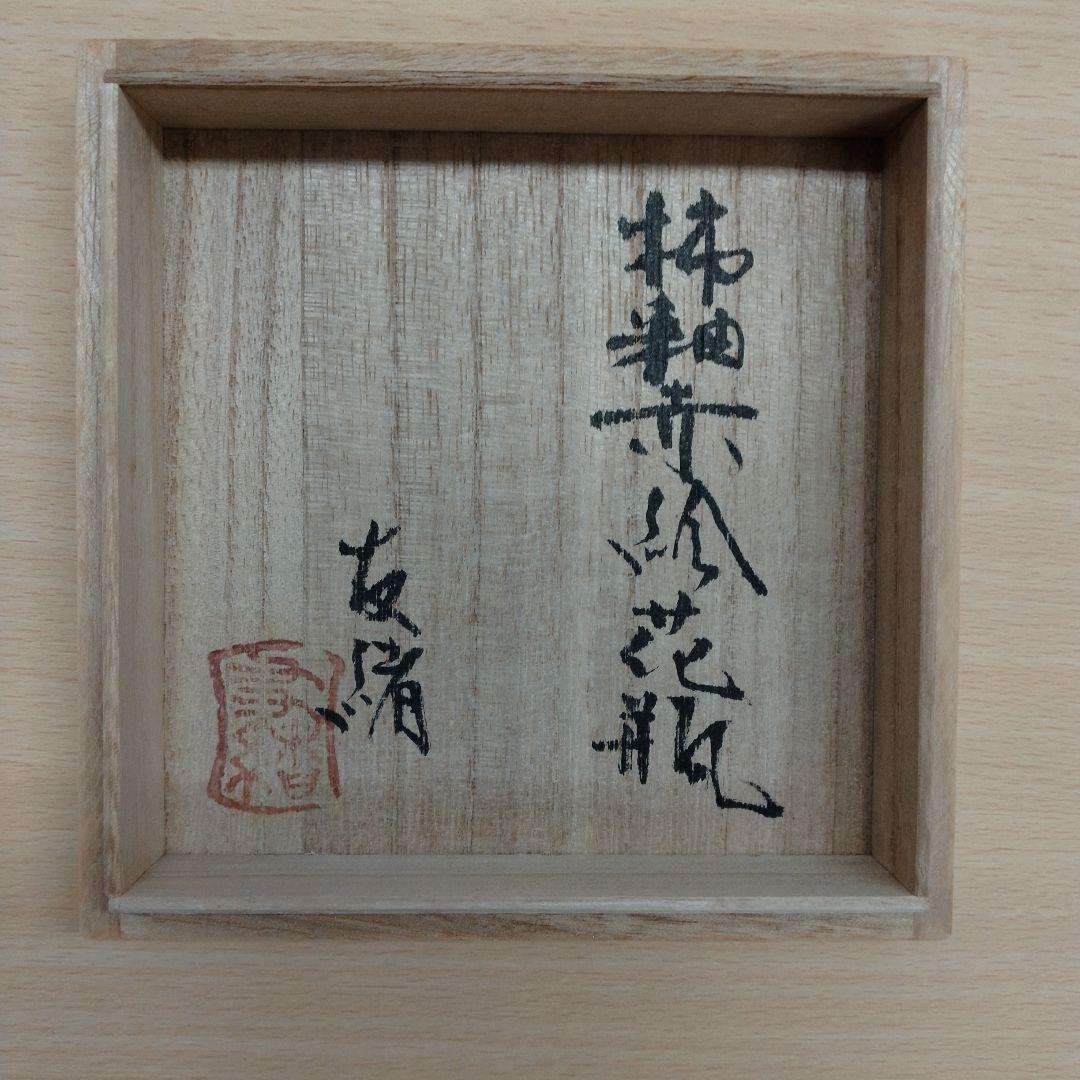 柿釉赤絵花瓶
友緒